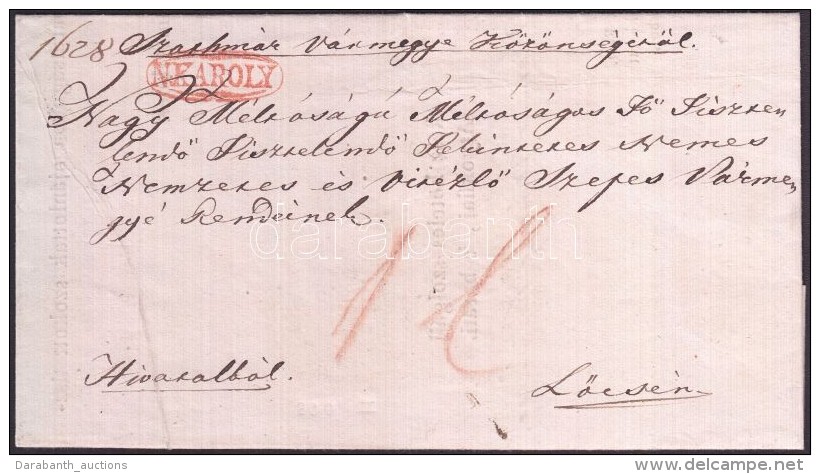 1628 Szathmár Vármegye Közönségétöl.
N.KAROLY
Nagy Méltóságú Méltóságos Fö Tiszte„
lendö Tisztelendö Tekintetes Nemes
Nemzetes és Vitézlö Szepes Várme„
gyé Rendeinek.
darabanth
Hivatalból.
Löcsén
Darabanth_auctions
www.delcampe.net